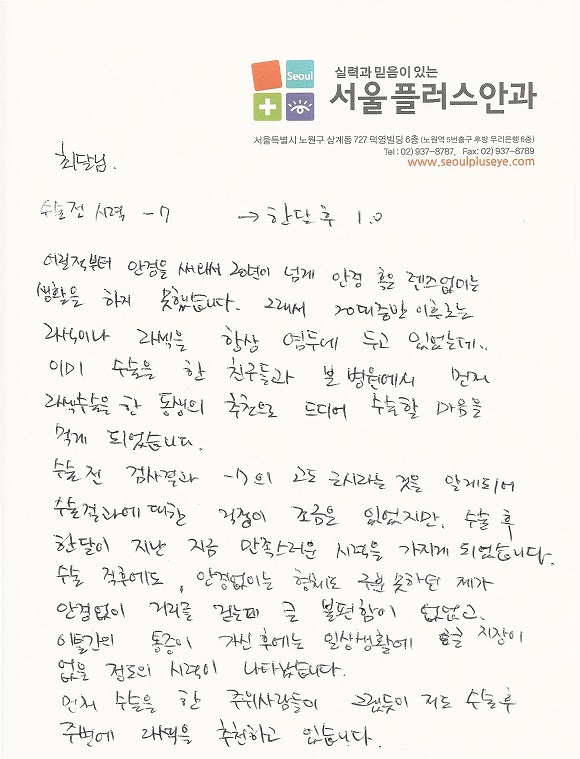 Seoul
실력과 믿음이 있는
서울 플러스안과
서울특별시 노원구 상계동 727 덕영빌딩 6층 (노원역 5번출구 후방 우리은행 6층)
Tel : 02) 937-8787, Fax: 02) 937-8789
www.seoulpluseye.com
최달님.
수술전 시력 -7 → 한달 후 1.0
어릴적부터 안경을 써와서 20년이 넘게 안경 혹은 렌즈없이는
생활을 하지 못했습니다. 그래서 20대중반 이후로는
라식이나 라섹을 항상 염두에 두고 있었는데..
이미 수술을 한 친구들과 본 병원에서 먼저
라섹수술을 한 동생의 추천으로 드디어 수술할 마음을
먹게 되었습니다.
수술전 검사결과 -7의 고도 근시라는 것을 알게되어
수술결과에 대한 걱정이 조금은 있었지만, 수술 후
한달이 지난 지금 만족스러운 시력을 가지게 되었습니다.
수술 직후에도, 안경없이는 형체도 구분 못하던 제가
안경없이 거리를 걷는데 큰 불편함이 없었고.
이틀간의 통증이 가신 후에는 일상생활에 큰 지장이
없을 정도의 시력이 나타났습니다.
먼저 수술을 한 주위사람들이 그랬듯이 저도 수술후
주변에 라섹을 추천하고 있습니다.